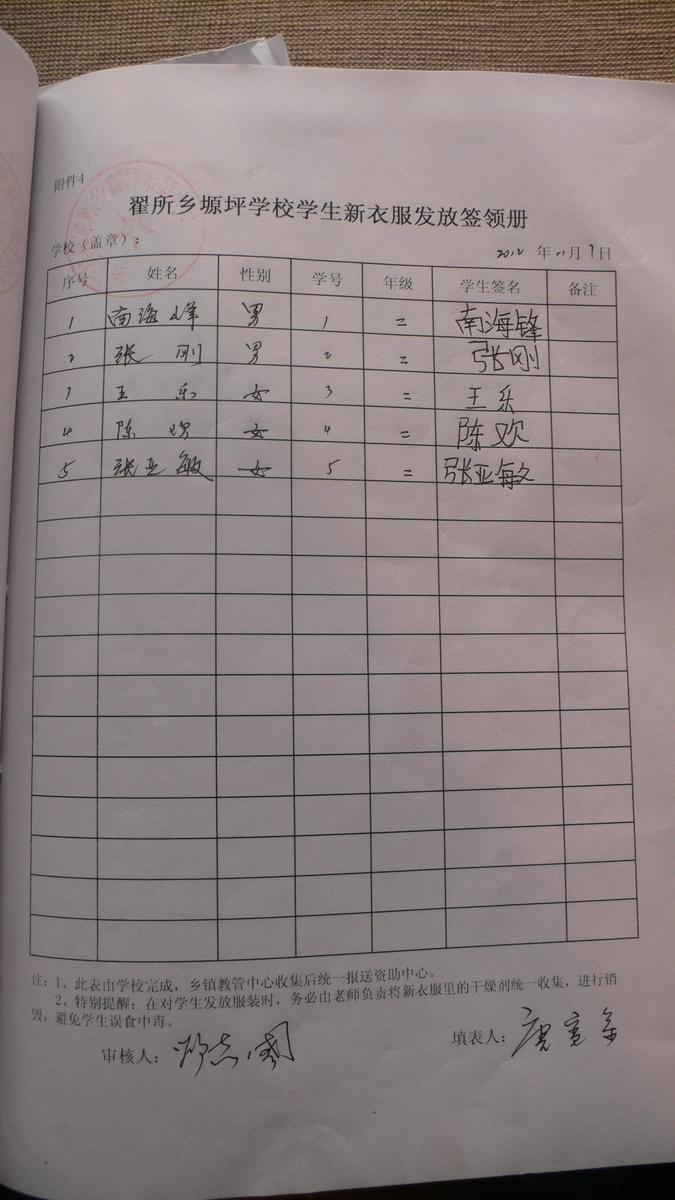 附件4
翟所乡塬坪学校学生新衣服发放签领册
学校（盖章）： 2012 年 11 月 7 日
序号 姓名 性别 学号 年级 学生签名 备注
1 南海锋 男 1 二 南海锋
2 张刚 男 2 二 张刚
3 王乐 女 3 二 王乐
4 陈欢 女 4 二 陈欢
5 张亚敏 女 5 二 张亚敏
注：1、此表由学校完成，乡镇教管中心收集后统一报送资助中心。
2、特别提醒：在对学生发放服装时，务必由老师负责将新衣服里的干燥剂统一收集，进行销
毁，避免学生误食中毒。
审核人： 填表人：